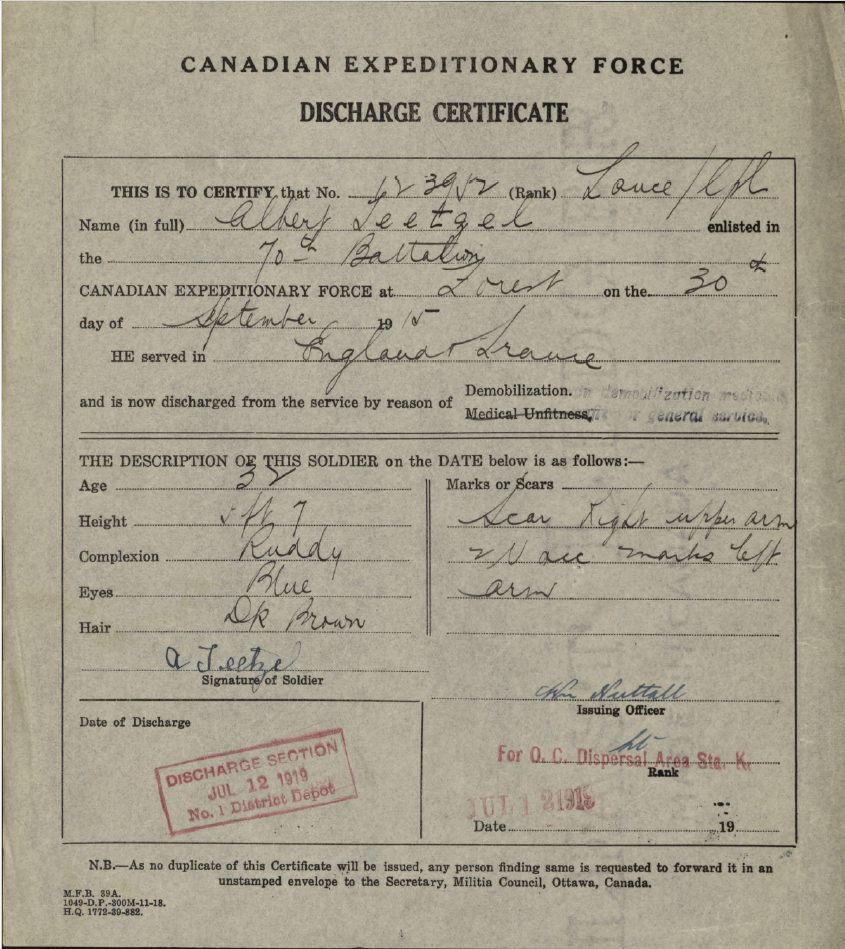 CANADIAN EXPEDITIONARY FORCE
DISCHARGE CERTIFICATE
THIS IS TO CERTIFY that No. 123952 (Rank) Lance/Cpl
Name (in full) Albert Teetzel enlisted in
the 70th Battalion
CANADIAN EXPEDITIONARY FORCE at Forest on the 30th
day of September 1915
HE served in England & France
and is now discharged from the service by reason of Demobilization.
Medical Unfitness,
on demobilization medically
general service.
THE DESCRIPTION OF THIS SOLDIER on the DATE below is as follows:—
Age 32
Height 5 ft 7
Complexion Ruddy
Eyes Blue
Hair Dk Brown
Marks or Scars
Scar Right upper arm
2 Vacc marks left
arm
A Teetzel
Signature of Soldier
Wm Nuttall
Issuing Officer
Lt
For O. C. Dispersal Area Sta. K.
Rank
Date of Discharge
DISCHARGE SECTION
JUL 12 1919
No. 1 District Depot
JUL 12 1919
Date 19
N.B.—As no duplicate of this Certificate will be issued, any person finding same is requested to forward it in an
unstamped envelope to the Secretary, Militia Council, Ottawa, Canada.
M.F.B. 39A.
1049-D.P.-300M-11-18.
H.Q. 1772-39-882.